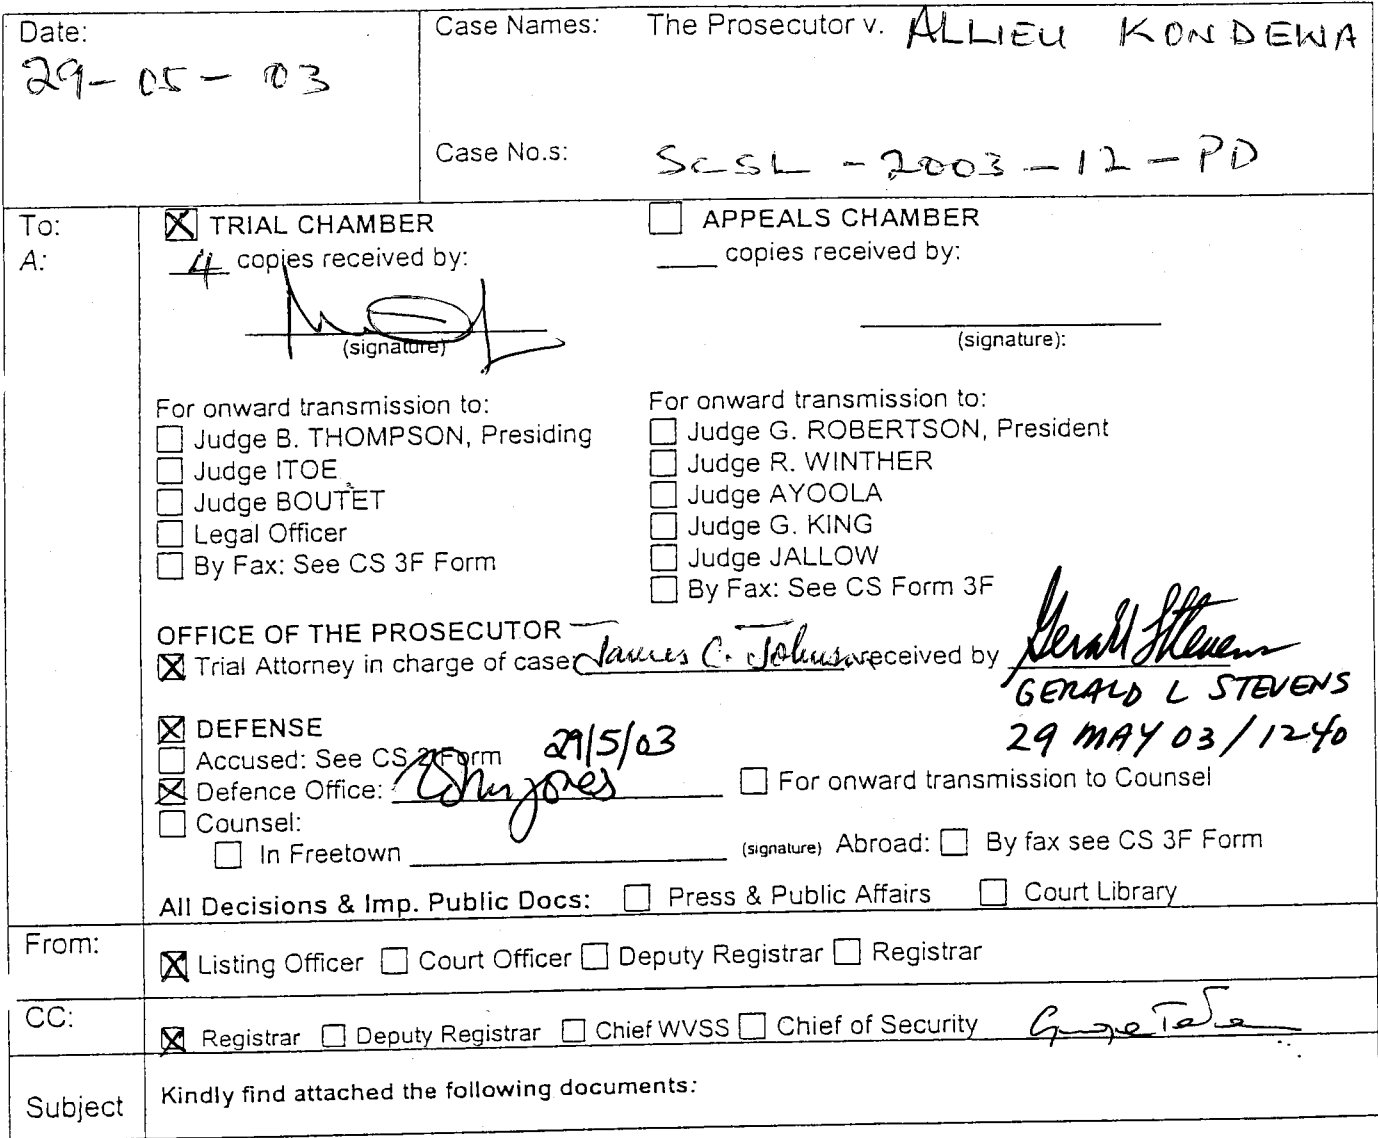 Date:
29-05-03
Case Names: The Prosecutor v. ALLIEU KONDEWA
Case No.s: SCSL-2003-12-PD
To:
A:
TRIAL CHAMBER
4 copies received by:
(signature)
For onward transmission to:
Judge B. THOMPSON, Presiding
Judge ITOE
Judge BOUTET
Legal Officer
By Fax: See CS 3F Form
APPEALS CHAMBER
____ copies received by:
(signature):
For onward transmission to:
Judge G. ROBERTSON, President
Judge R. WINTHER
Judge AYOOLA
Judge G. KING
Judge JALLOW
By Fax: See CS Form 3F
OFFICE OF THE PROSECUTOR
Trial Attorney in charge of case: James C. Johnson received by Gerald Stevens
GERALD L STEVENS
29 MAY 03/1240
DEFENSE
Accused: See CS 2 Form 29/5/03
Defence Office: For onward transmission to Counsel
Counsel:
In Freetown (signature) Abroad: By fax see CS 3F Form
All Decisions & Imp. Public Docs: Press & Public Affairs Court Library
From:
Listing Officer Court Officer Deputy Registrar Registrar
CC:
Registrar Deputy Registrar Chief WVSS Chief of Security
Subject
Kindly find attached the following documents: